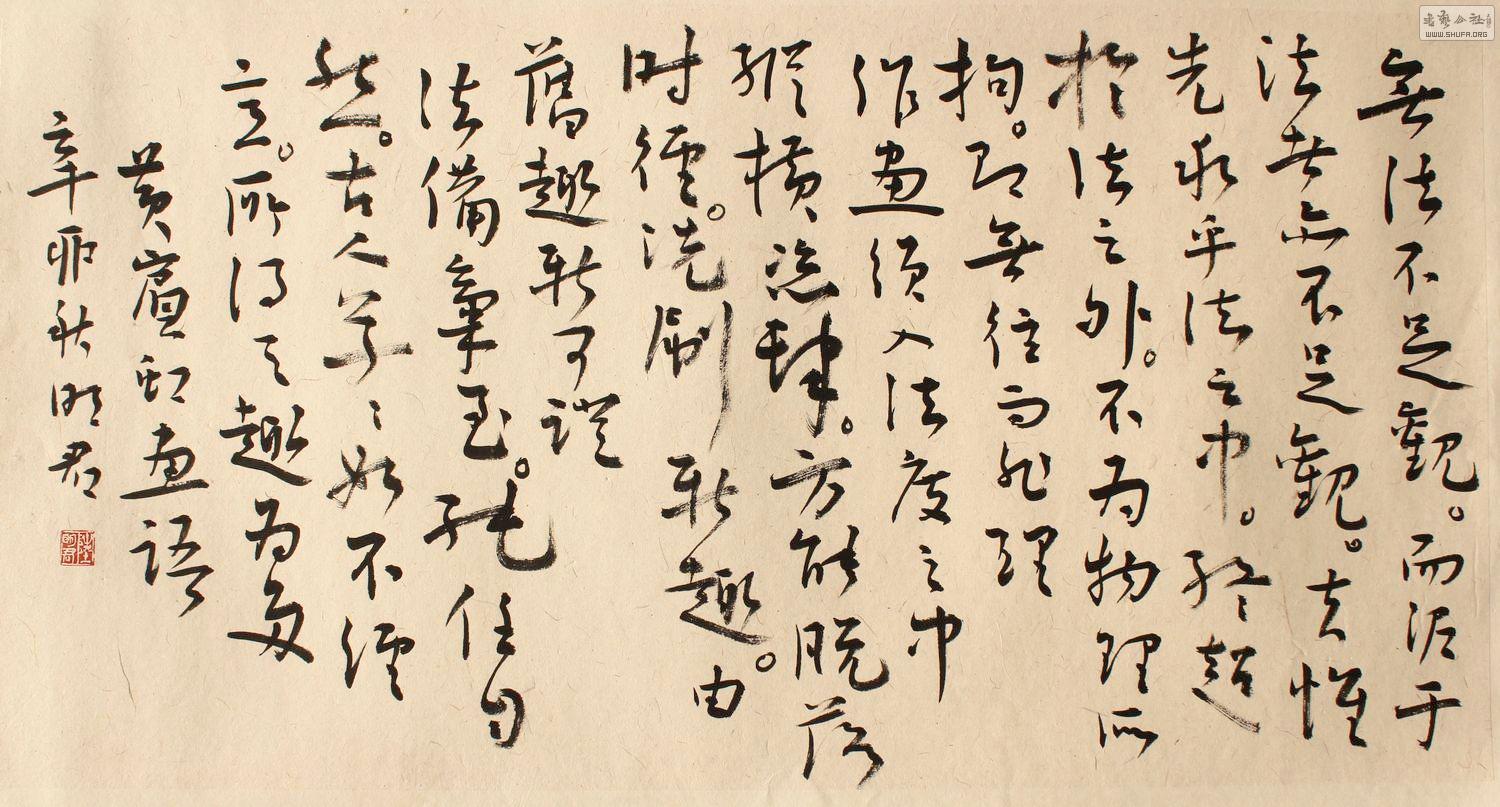 無法不足觀。而泥于
法者亦不足觀。夫惟
先求乎法之中。終超
於法之外。不為物理所
拘。即無往而非理
作畫須入法度之中
縱橫恣肆。方能脫落
时徑。洗刷新趣。由
舊趣新可證
法備氣至。純任自
然。古人草〻如不經
意。所得天趣為多
黃賓虹畫語
辛卯秋明君
陸明君
書藝公社
WWW.SHUFA.ORG